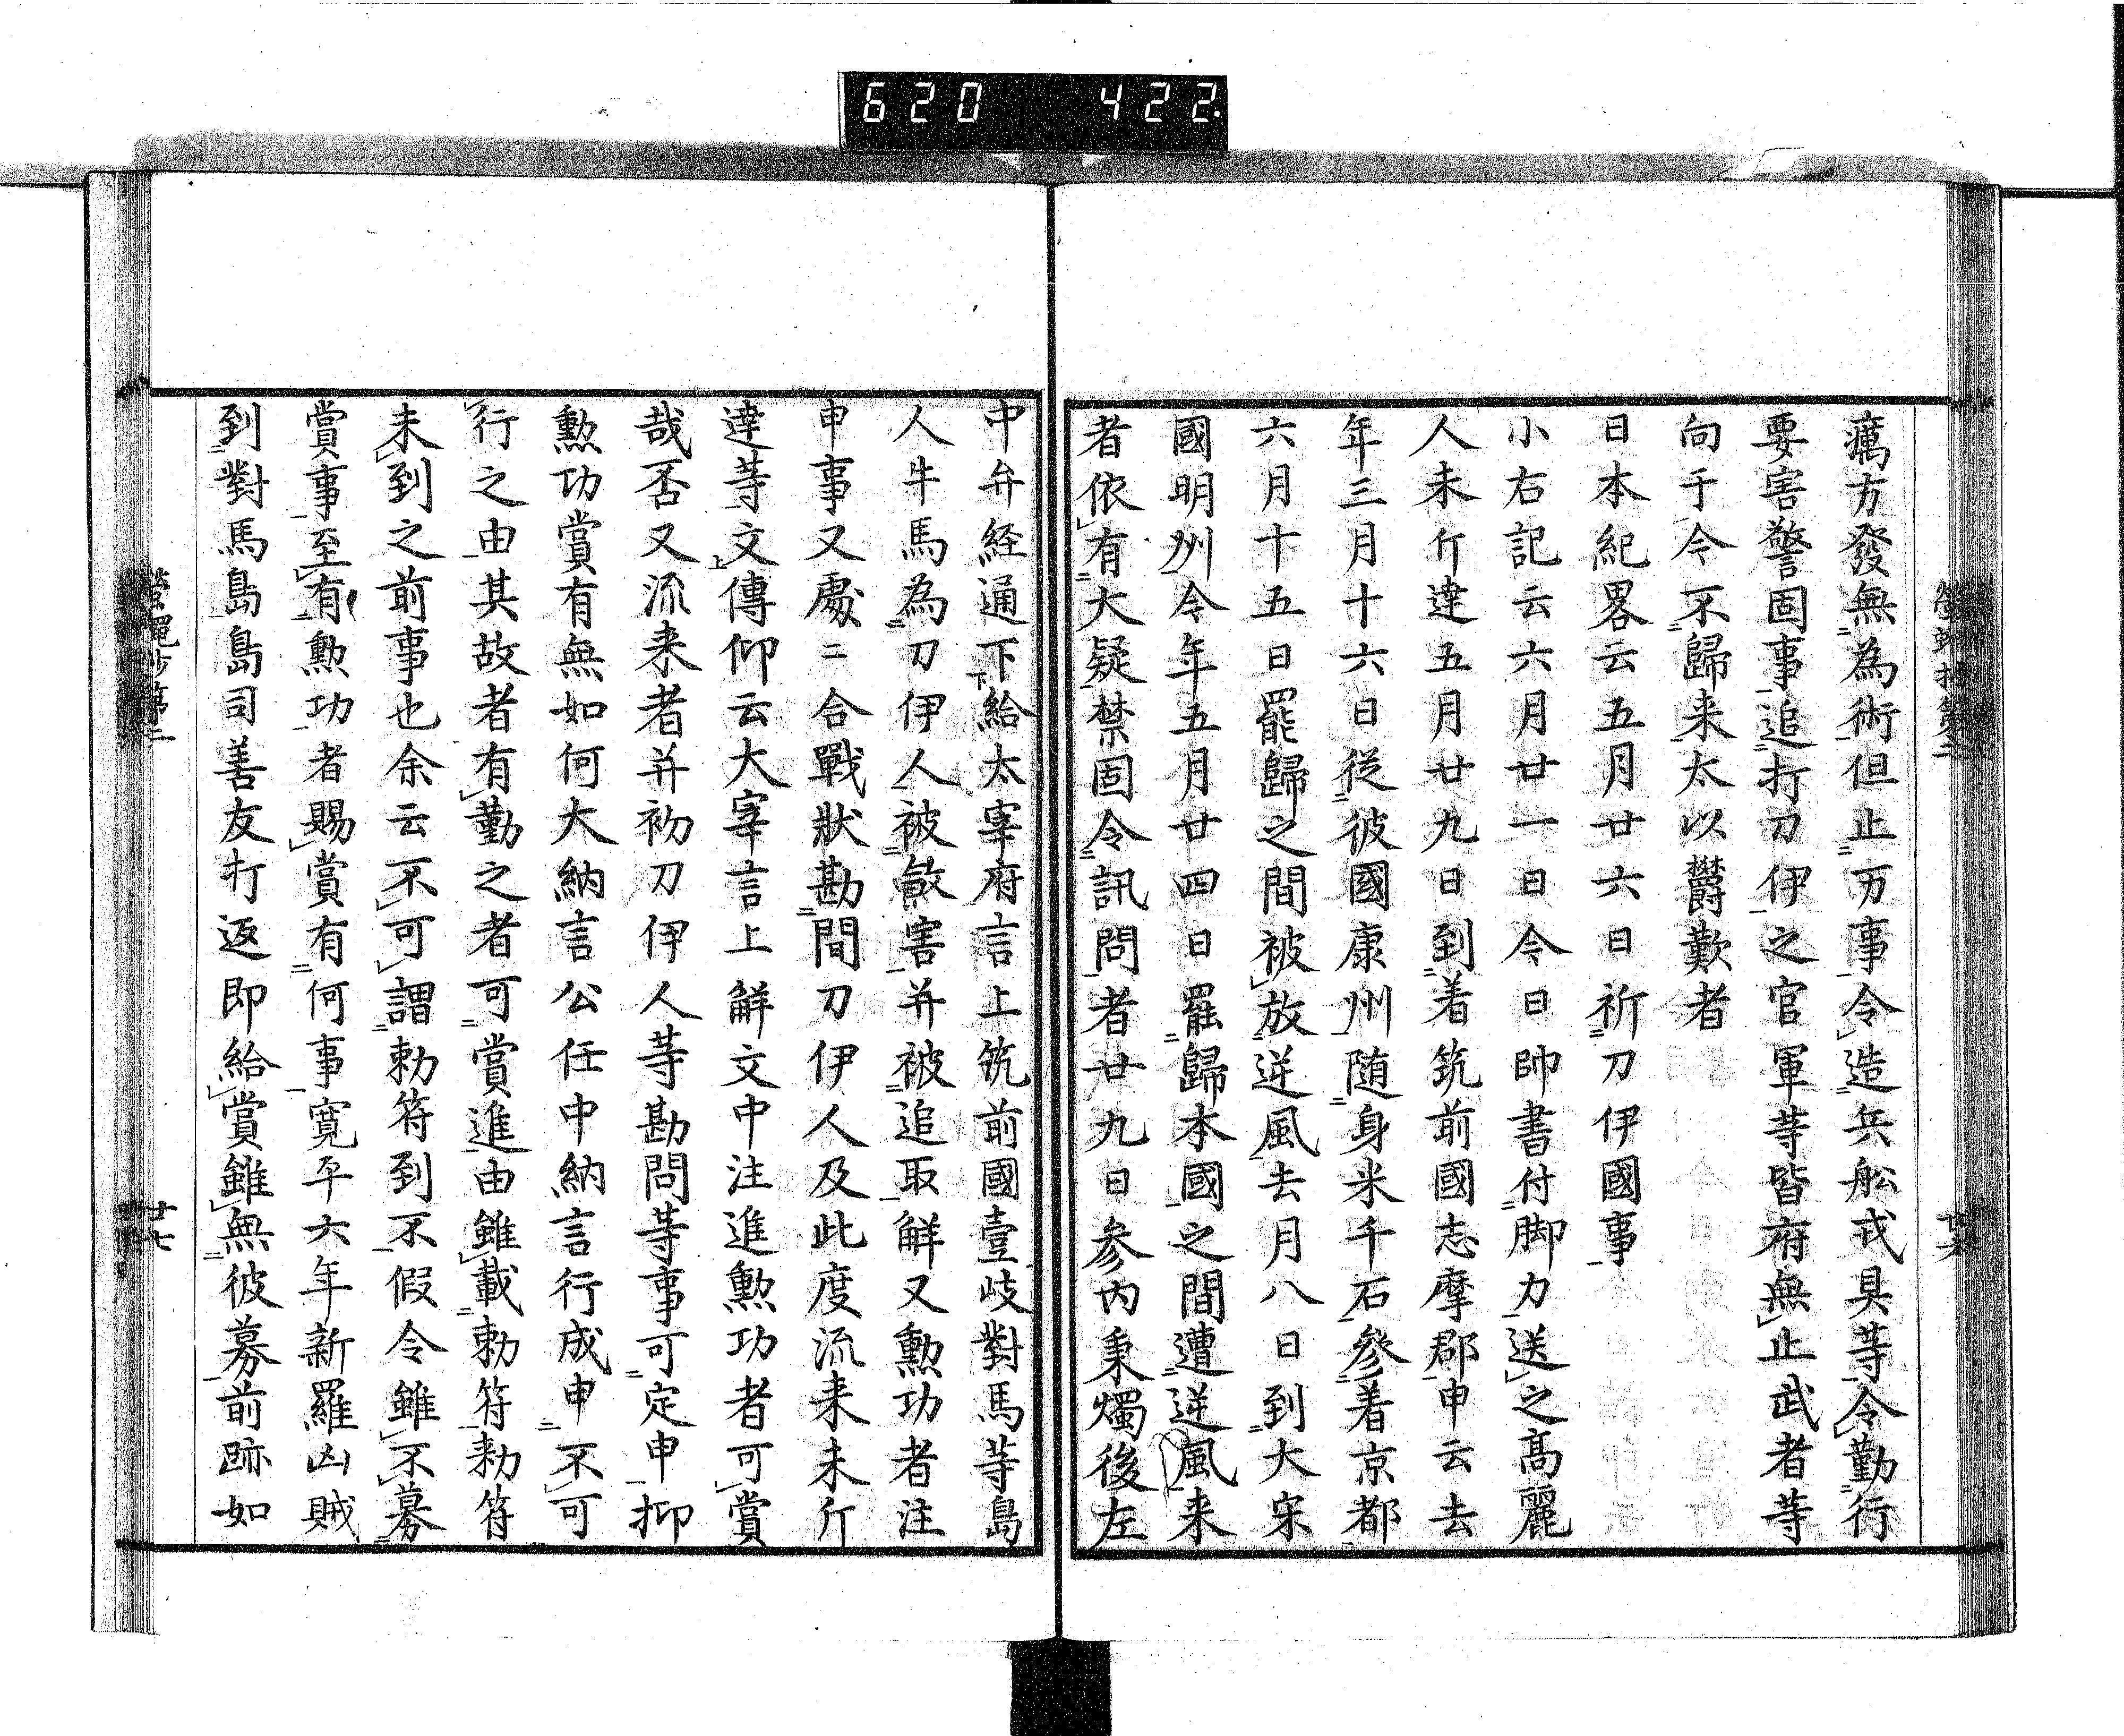 620 422
癘方發無為術但止万事令造兵舩戎具等令勤行
要害警固事追打刀伊之官軍等皆府無止武者等
向于今不歸来太以欝歎者
日本紀畧云五月廿六日祈刀伊國事
小右記云六月廿一日令日帥書付脚力送之高麗
人未斤達五月廿九日到着筑前國志摩郡申云去
年三月十六日従彼國康州随身米千石參着京都
六月十五日罷歸之間被放逆風去月八日到大宋
國明州令年五月廿四日罷歸本國之間遭逆風来
者依有大疑禁固令訊問者廿九日参内秉燭後左
中弁経通下給太宰府言上筑前國壹岐對馬等島
人牛馬為刀伊人被敘害并被追取解又勲功者注
申事又處二合戰狀勘間刀伊人及此度流来未斤
達等文傳仰云大宰言上解文中注進勲功者可賞
哉否又流来者并初刀伊人等勘問等事可定申抑
勲功賞有無如何大納言公任中納言行成申不可
行之由其故者有勤之者可賞進由雖載勅符勅符
未到之前事也余云不可謂勅符到不假令雖不募
賞事至有勲功者賜賞有何事寛平六年新羅凶賊
到對馬島島司善友打返即給賞雖無彼募前跡如
螢蠅抄第二
廿七